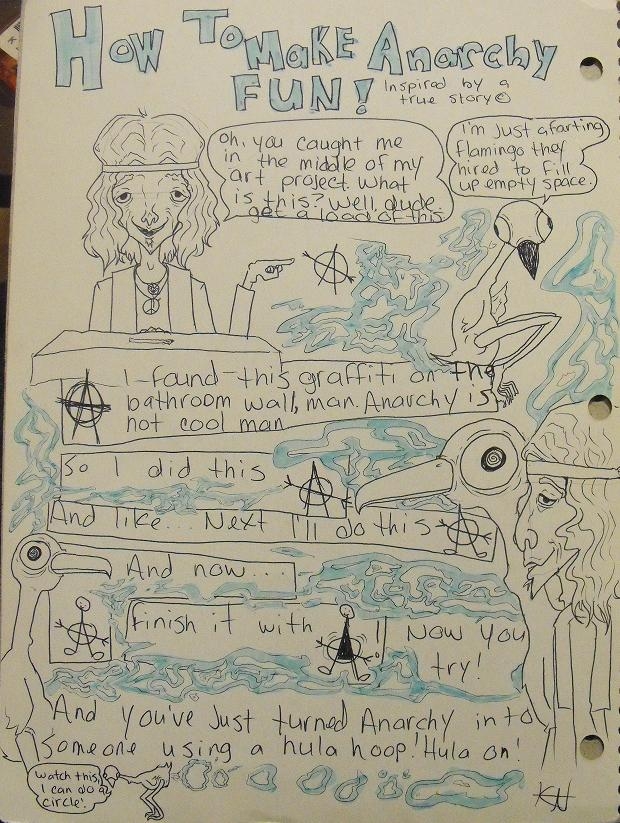 How To Make Anarchy
FUN!
Inspired by a
true story
Oh, you caught me
in the middle of my
art project. What
is this? Well, dude
get a load of this
I'm just a farting
flamingo they
hired to fill
up empty space.
I found this graffiti on the
bathroom wall, man. Anarchy is
not cool man
So I did this
And like... Next I'll do this
And now...
Finish it with
!
Now you
try!
And you've just turned Anarchy into
someone using a hula hoop! Hula on!
Watch this,
I can do a
circle!